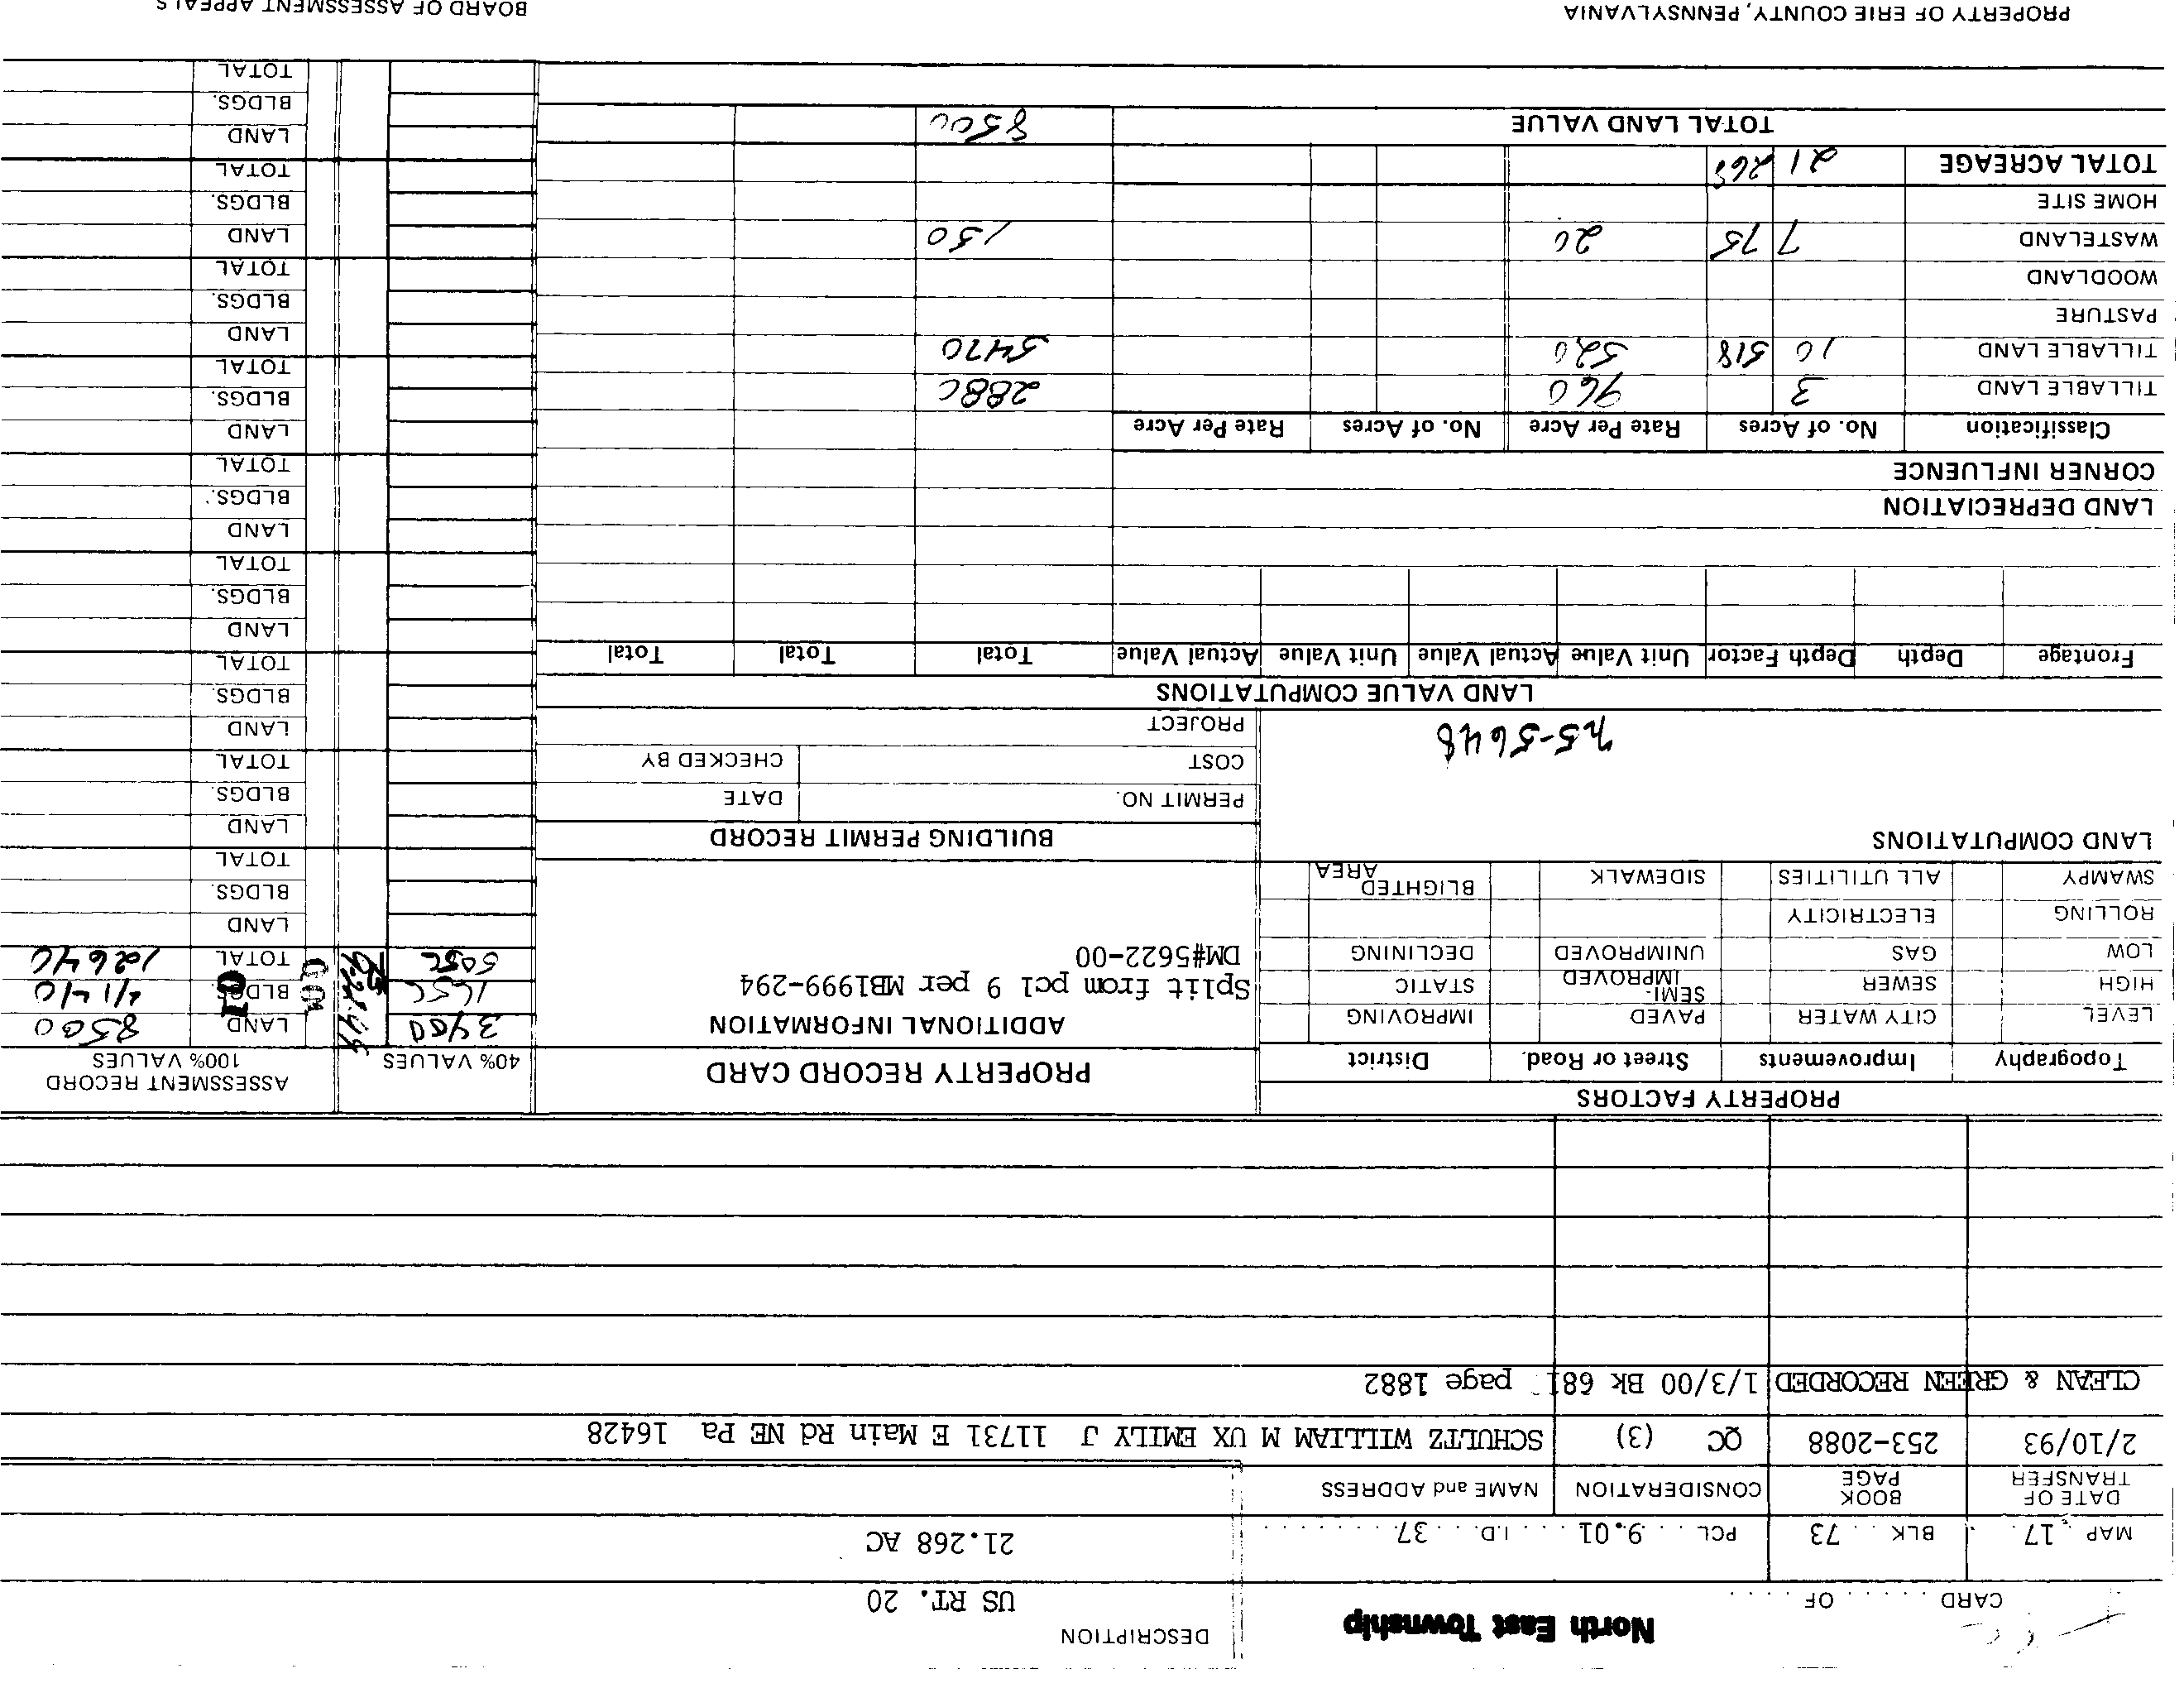 North East Township
CARD . . . . . . OF . . . . . .
DESCRIPTION
US RT. 20
MAP . 17 . . BLK . . . 73 PCL . . . 9.01 . . . . I.D. . . . 37 . . . . . . . .
21.268 AC
DATE OF TRANSFER BOOK PAGE CONSIDERATION NAME and ADDRESS
2/10/93 253-2088 QC (3) SCHULTZ WILLIAM M UX EMILY J 11731 E Main Rd NE Pa 16428
CLEAN & GREEN RECORDED 1/3/00 Bk 681 page 1882
PROPERTY FACTORS
Topography Improvements Street or Road. District
LEVEL CITY WATER PAVED IMPROVING
HIGH SEWER SEMI-IMPROVED STATIC
LOW GAS UNIMPROVED DECLINING
ROLLING ELECTRICITY
SWAMPY ALL UTILITIES SIDEWALK BLIGHTED AREA
LAND COMPUTATIONS
25-5648
PROPERTY RECORD CARD
ADDITIONAL INFORMATION
Split from pcl 9 per MB1999-294
DM#5622-00
BUILDING PERMIT RECORD
PERMIT NO. DATE
COST CHECKED BY
PROJECT
40% VALUES ASSESSMENT RECORD 100% VALUES
3400 LAND 8500
1656 01 BLDGS. 4140
5056 TOTAL 12640
LAND
BLDGS.
TOTAL
LAND
BLDGS.
TOTAL
LAND
BLDGS.
TOTAL
LAND
BLDGS.
TOTAL
LAND
BLDGS.
TOTAL
LAND
BLDGS.
TOTAL
LAND
BLDGS.
TOTAL
LAND
BLDGS.
TOTAL
LAND
BLDGS.
TOTAL
LAND VALUE COMPUTATIONS
Frontage Depth Depth Factor Unit Value Actual Value Unit Value Actual Value Total Total Total
LAND DEPRECIATION
CORNER INFLUENCE
Classification No. of Acres Rate Per Acre No. of Acres Rate Per Acre
TILLABLE LAND 3 960 2880
TILLABLE LAND 10 518 520 5470
PASTURE
WOODLAND
WASTELAND 7 75 20 150
HOME SITE
TOTAL ACREAGE 21 268
TOTAL LAND VALUE 8500
PROPERTY OF ERIE COUNTY, PENNSYLVANIA BOARD OF ASSESSMENT APPEALS